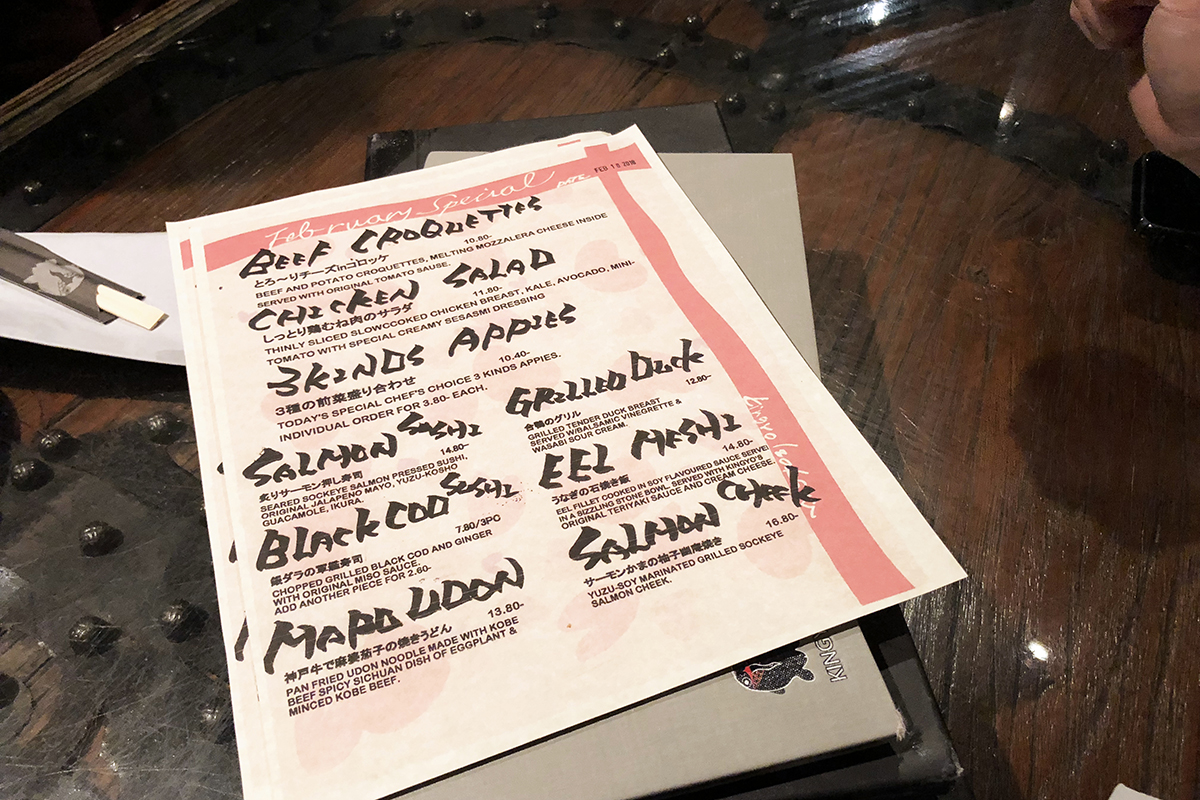 February Special
DATE
FEB 15 2018
BEEF CROQUETTES
10.80-
とろ～りチーズinコロッケ
BEEF AND POTATO CROQUETTES, MELTING MOZZALERA CHEESE INSIDE
SERVED WITH ORIGINAL TOMATO SAUSE.
CHICKEN SALAD
11.80-
しっとり鶏むね肉のサラダ
THINLY SLICED SLOWCCOKED CHICKEN BREAST, KALE, AVOCADO, MINI-
TOMATO WITH SPECIAL CREAMY SESASMI DRESSING
3 KINDS APPIES
10.40-
3種の前菜盛り合わせ
TODAY'S SPECIAL CHEF'S CHOICE 3 KINDS APPIES.
INDIVIDUAL ORDER FOR 3.80- EACH.
SALMON SUSHI
14.80-
炙りサーモン押し寿司
SEARED SOCKEYE SALMON PRESSED SUSHI,
ORIGINAL JALAPENO MAYO, YUZU-KOSHO
GUACAMOLE, IKURA.
BLACK COD SUSHI
7.80/3PC
銀ダラの軍艦寿司
CHOPPED GRILLED BLACK COD AND GINGER
WITH ORIGINAL MISO SAUCE.
ADD ANOTHER PIECE FOR 2.60-
MAPO UDON
13.80-
神戸牛で麻婆茄子の焼きうどん
PAN FRIED UDON NOODLE MADE WITH KOBE
BEEF SPICY SICHUAN DISH OF EGGPLANT &
MINCED KOBE BEEF.
GRILLED DUCK
12.80-
合鴨のグリル
GRILLED TENDER DUCK BREAST
SERVED W/BALSAMIC VINEGRETTE &
WASABI SOUR CREAM.
EEL MESHI
14.80-
うなぎの石焼き飯
EEL FILLET COOKED IN SOY FLAVOURED SAUCE SERVE
IN A SIZZLING STONE BOWL. SERVED WITH KINGYO'S
ORIGINAL TERIYAKI SAUCE AND CREAM CHEESE.
SALMON CHEEK
16.80-
サーモンかまの柚子幽庵焼き
YUZU-SOY MARINATED GRILLED SOCKEYE
SALMON CHEEK.
kingyo Izakaya
KING